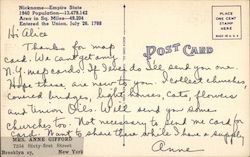 Nickname—Empire State
1940 Population—13,479,142
Area in Sq. Miles—49,204
Entered the Union, July 26, 1788
PLACE
STAMP
HERE
POST CARD
Hi Alice
Thanks for map
card. We can't get any
N.Y. map cards. If I ever do I'll send you one.
Hope these are new to you. I collect churches,
covered bridges, light houses, cats, flowers,
and Tension Oils. Will send you some
churches too. Not necessary to send me card for
card. Want to share these while I have a supply.
Anne
MRS. ANNE GIFFORD
1234 Sixty-first Street
Brooklyn 19, New York